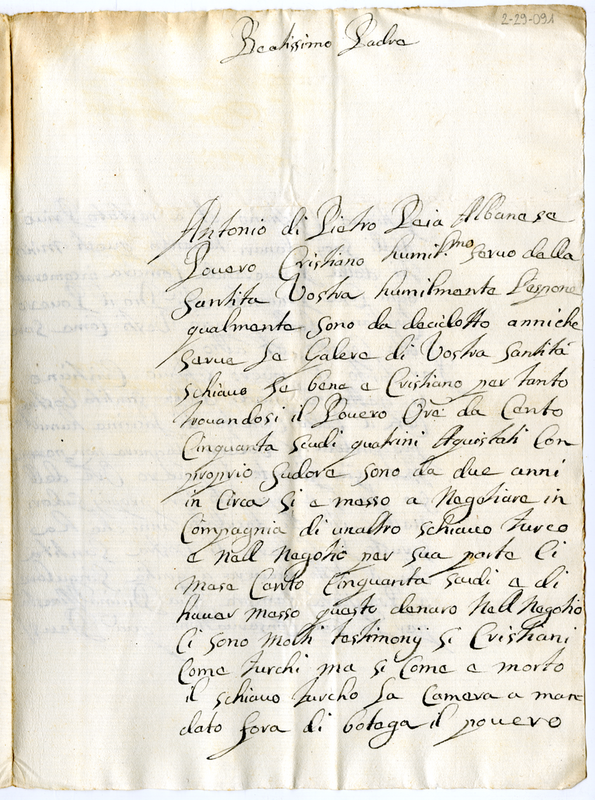 2-29-091
Beatissimo Padre
Antonio di Pietro Peia Albanese
Povero Cristiano humil.mo servo della
Santita Vostra humilmente l'espone
qualmente sono da decidotto anni che
serve le Galere di Vostra Santità
schiavo se bene e Cristiano per tanto
trovandosi il Povero Ore da Cento
Cinquanta scudi quatrini Aquistati Con
proprio sudore sono da due anni
in Circa si e messo a Negotiare in
Compagnia di unaltro schiavo turco
e nell Negotio per sua parte Ci
mese Cento Cinquanta scudi e di
haver messo questo denaro nell Negotio
Ci sono molti testimonij si Cristiani
Come turchi ma si Come e morto
il schiavo turcho la Camera a man
dato fora di botega il povero